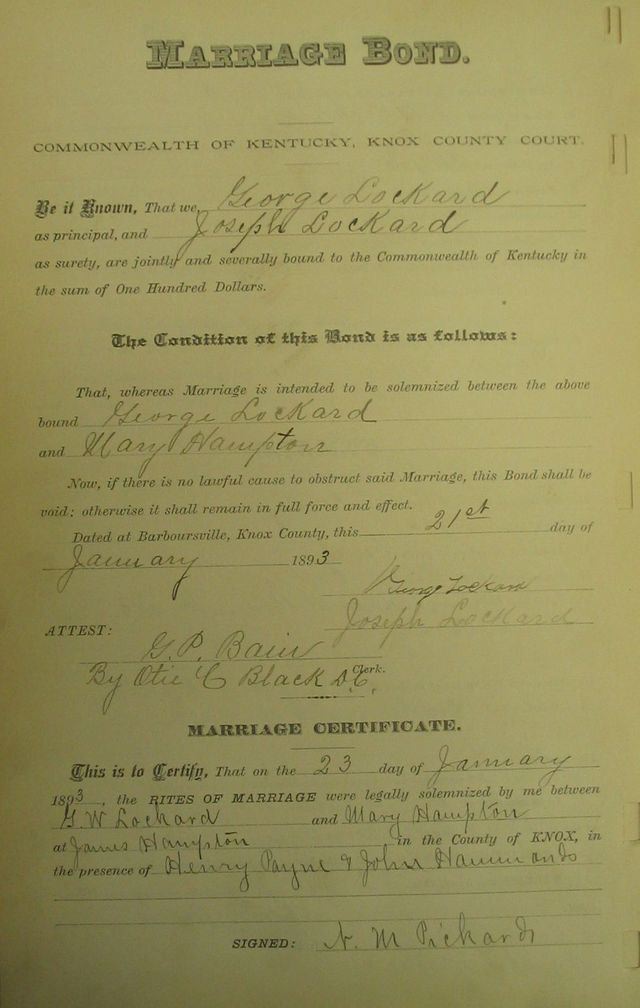 MARRIAGE BOND.
COMMONWEALTH OF KENTUCKY, KNOX COUNTY COURT.
Be it Known, That we, George Lockard
as principal, and Joseph Lockard
as surety, are jointly and severally bound to the Commonwealth of Kentucky in
the sum of One Hundred Dollars.
The Condition of this Bond is as follows:
That, whereas Marriage is intended to be solemnized between the above
bound George Lockard
and Mary Hampton
Now, if there is no lawful cause to obstruct said Marriage, this Bond shall be
void; otherwise it shall remain in full force and effect.
Dated at Barboursville, Knox County, this 21st day of
January 1893
George Lockard
Joseph Lockard
ATTEST:
G. P. Bain
By Otie C Black D.C. Clerk.
MARRIAGE CERTIFICATE.
This is to Certify, That on the 23 day of January
1893, the RITES OF MARRIAGE were legally solemnized by me between
G.W Lockard and Mary Hampton
at James Hampton in the County of KNOX, in
the presence of Henry Payne & John Hammonds
SIGNED: N. M Pickards